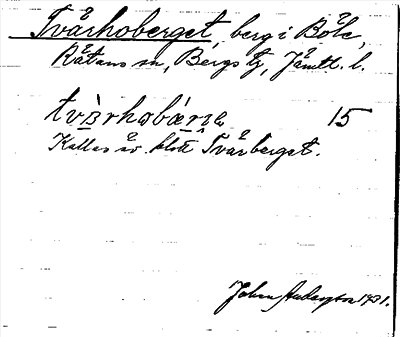 Tvårhoberget, berg i Böle,
Råtans sn, Bergs tg, Jämtl. l.
tvɜ̀rhobærɜe 15
Kallas äv. blott Tvärberget.
Johan Anderson 1931.